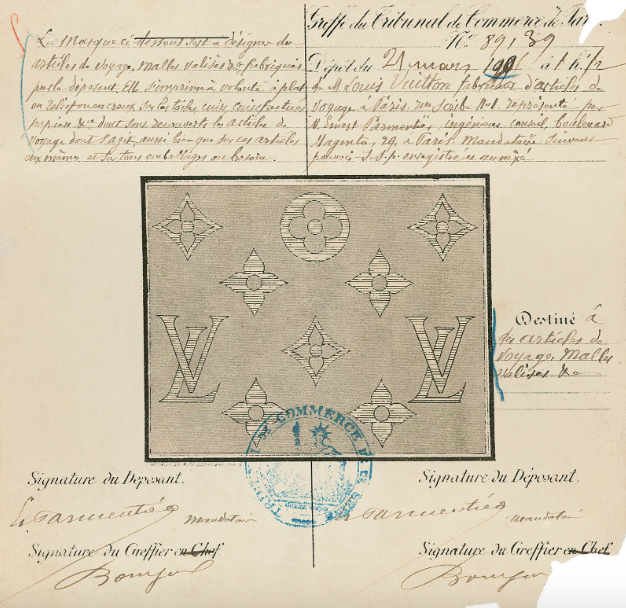 La Marque ci-dessous sert à désigner des
articles de voyage, malles valises &c fabriqués
par le déposant. Elle s'imprime à volonté à plat
en relief ou en creux sur les toiles cuirs cuirs factices
papiers &ca dont sont recouverts les articles de
voyage dont s'agit, aussi bien que sur ces articles
eux mêmes et sur tous emballages au besoin.
Greffe du Tribunal de Commerce de Par
No. 89,39
Dépôt du 21 mars à 1 h.
de M. Louis Vuitton fabricant d'articles de
voyage à Paris. rue Scribe No 1 représenté par
M. Ernest Parmentier, ingénieur conseil, boulevard
Magenta, 29 à Paris. Mandataire suivant
pouvoir S.S.p. enregistré et annexé
LV
LV
Destiné à
des articles de
voyage, Malles
valises &c
COMMERCE DE LA SEINE
Signature du Déposant.
E. Parmentier mandataire
Signature du Greffier en Chef
Signature du Déposant.
E. Parmentier mandataire
Signature du Greffier en Chef